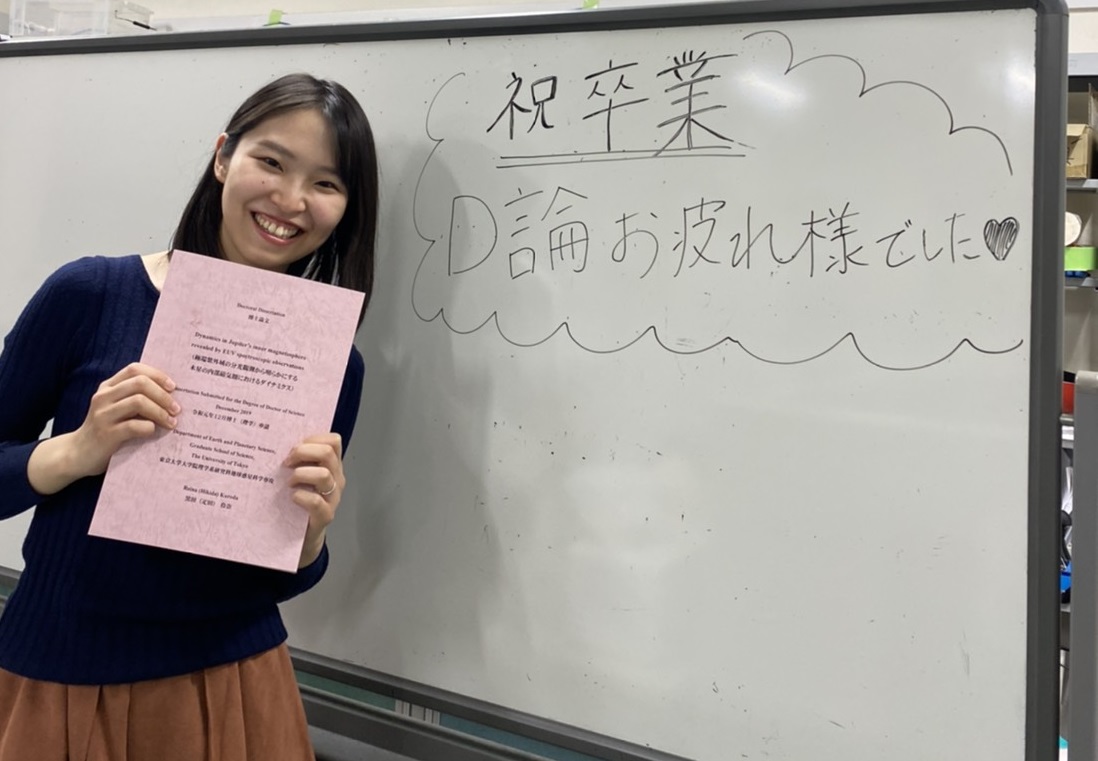 祝卒業
D論お疲れ様でした♥
Doctoral Dissertation
博士論文
Dynamics in Jupiter's inner magnetosphere
revealed by EUV spectroscopic observations
(極端紫外域の分光観測から明らかにする
木星の内部磁気圏におけるダイナミクス)
Dissertation Submitted for the Degree of Doctor of Science
December 2019
令和元年12月博士(理学)申請
Department of Earth and Planetary Science,
Graduate School of Science,
The University of Tokyo
東京大学大学院理学系研究科地球惑星科学専攻
Reina (Hikida) Kuroda